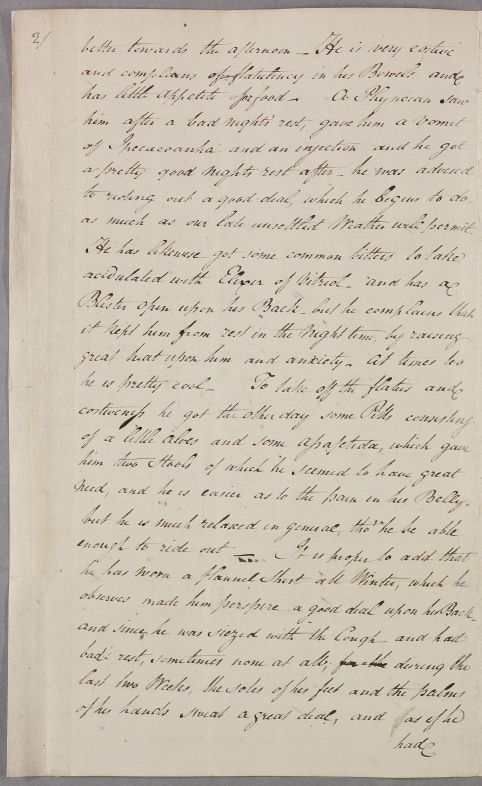 2/
better towards the afternoon _ He is very costive
and complains of flatulency in his Bowels and
has little appetite for food _ A Physician saw
him after a bad nights rest, gave him a vomit
of Ipecacoanha and an injection and he got
a pretty good nights rest after _ he was advised
to riding out a good deal, which he begins to do
as much as our late unsettled Weather will permit
He has likewise got some common bitters to take
acidulated with Elixer of Vitriol _ and has a
Blister open upon his Back _ but he complains that
it kept him from rest in the Night time, by raising
great heat upon him and anxiety _ At times too
he is pretty cool _ To take off the flatus and
costiveness he got the other day some Pills consisting
of a little aloes and some assafetida, which gave
him two Stools of which he seemed to have great
need, and he is easier as to the pain in his Belly _
but he is much relaxed in general, tho' he be able
enough to ride out _ It is proper to add that
he has worn a flannel Shirt all Winter, which he
observes made him perspire a good deal upon his Back
and since he was siezed with the Cough _ and had
bad rest, sometimes none at all, during the
last two Weeks, the soles of his feet and the palms
of his hands sweat a great deal, and as if he
had